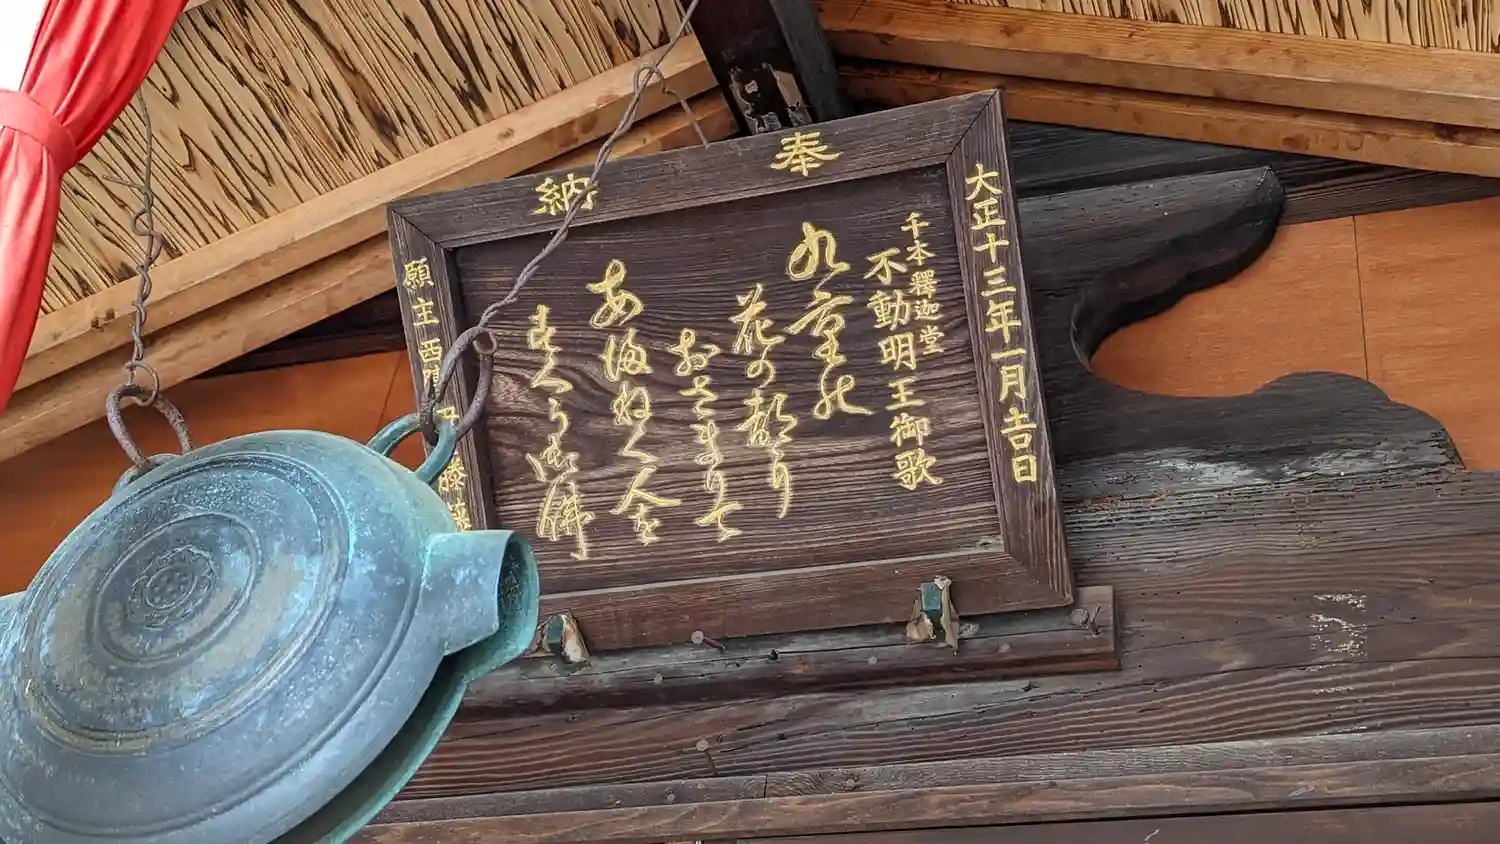 奉納
大正十三年一月吉日
千本釋迦堂
不動明王御歌
九重の
花の都に
おさまりて
あまねく人を
すくう御佛
願主 西 藤